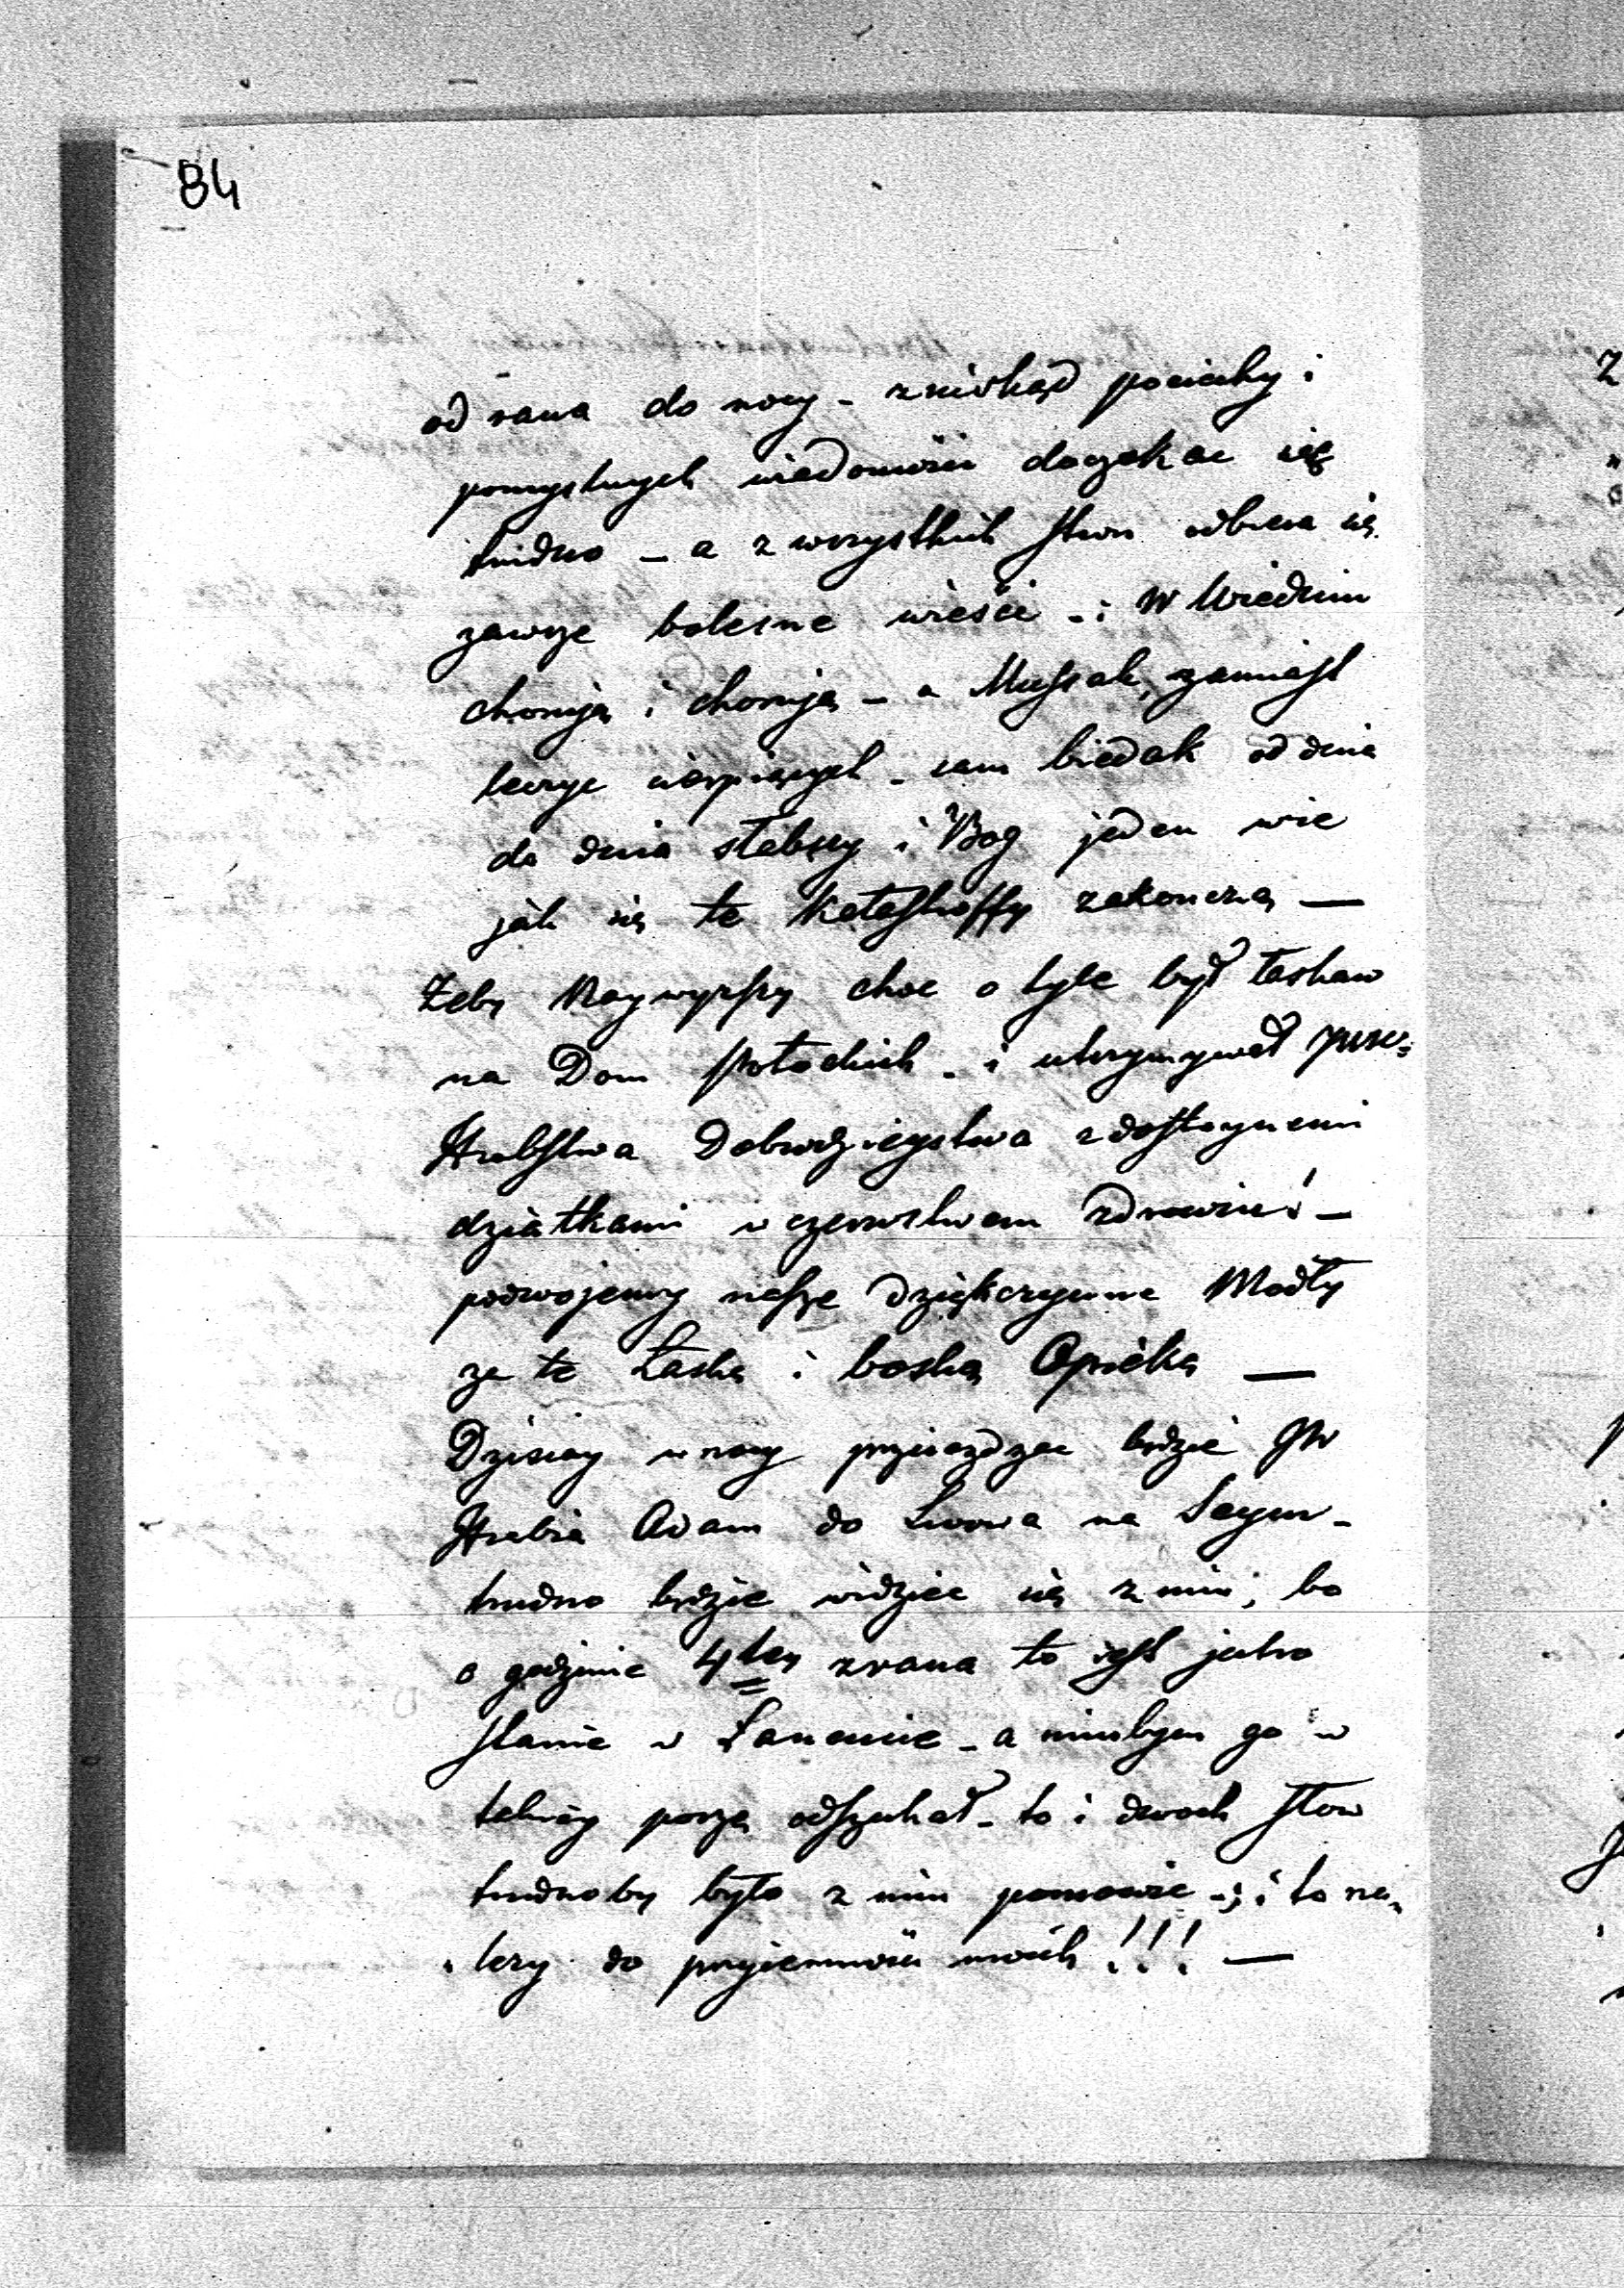 84
od rana do nocy - znikąd pociechy i
pomyslnych wiadomości doczekac się
trudno - a z wszystkich stron odbiera się
zawsze bolesne wieście - i W Wiedniu
chorują i chorują - a Mussak, zamiast
leczyc cierpiących - sam biedak od dnia
do dnia słabszy i Bog jeden wie
jak się te Katastroffy zakonczą —
Żeby Naywyższy choc o tyle był łaskaw
na Dom Potockich - i utrzymywał JWW:
Hrabstwa Dobrodzieystwa z dostoynemi
dziatkami w czerstwem zdrowiu -
podwojemy nasze dziękczynne Modły
za te Łaskę i boską Opiekę —
Dzisiay w nocy przeieżdzac będzie JW
Hrabia Adam do Lwowa na Seym -
trudno będzie widziec się z nim, bo
o godzinie 4tey zrana to iest jutro
stanie w Łancucie - a nimbym go w
takiey porze odszukał - to i dwoch słow
trudnoby było z nim pomowic -; i to na„
„lezy do przyiemności moich!!! —